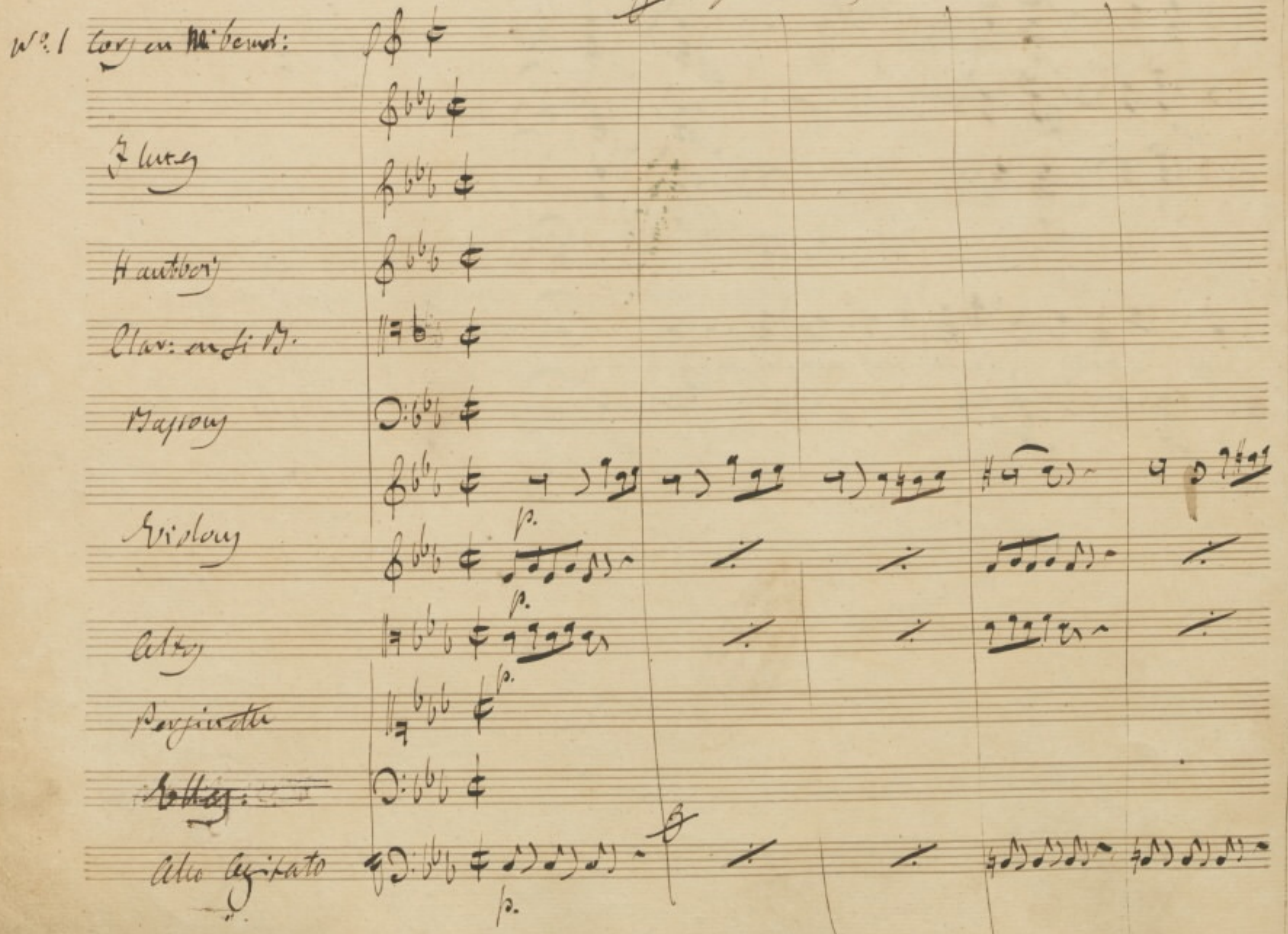 Nº. 1 Cors en mi bemol:
Flutes
Hautbois
Clar: en si B.
Bassons
Violons
p.
p.
Altos
p.
Persinette
Allo Agitato
p.